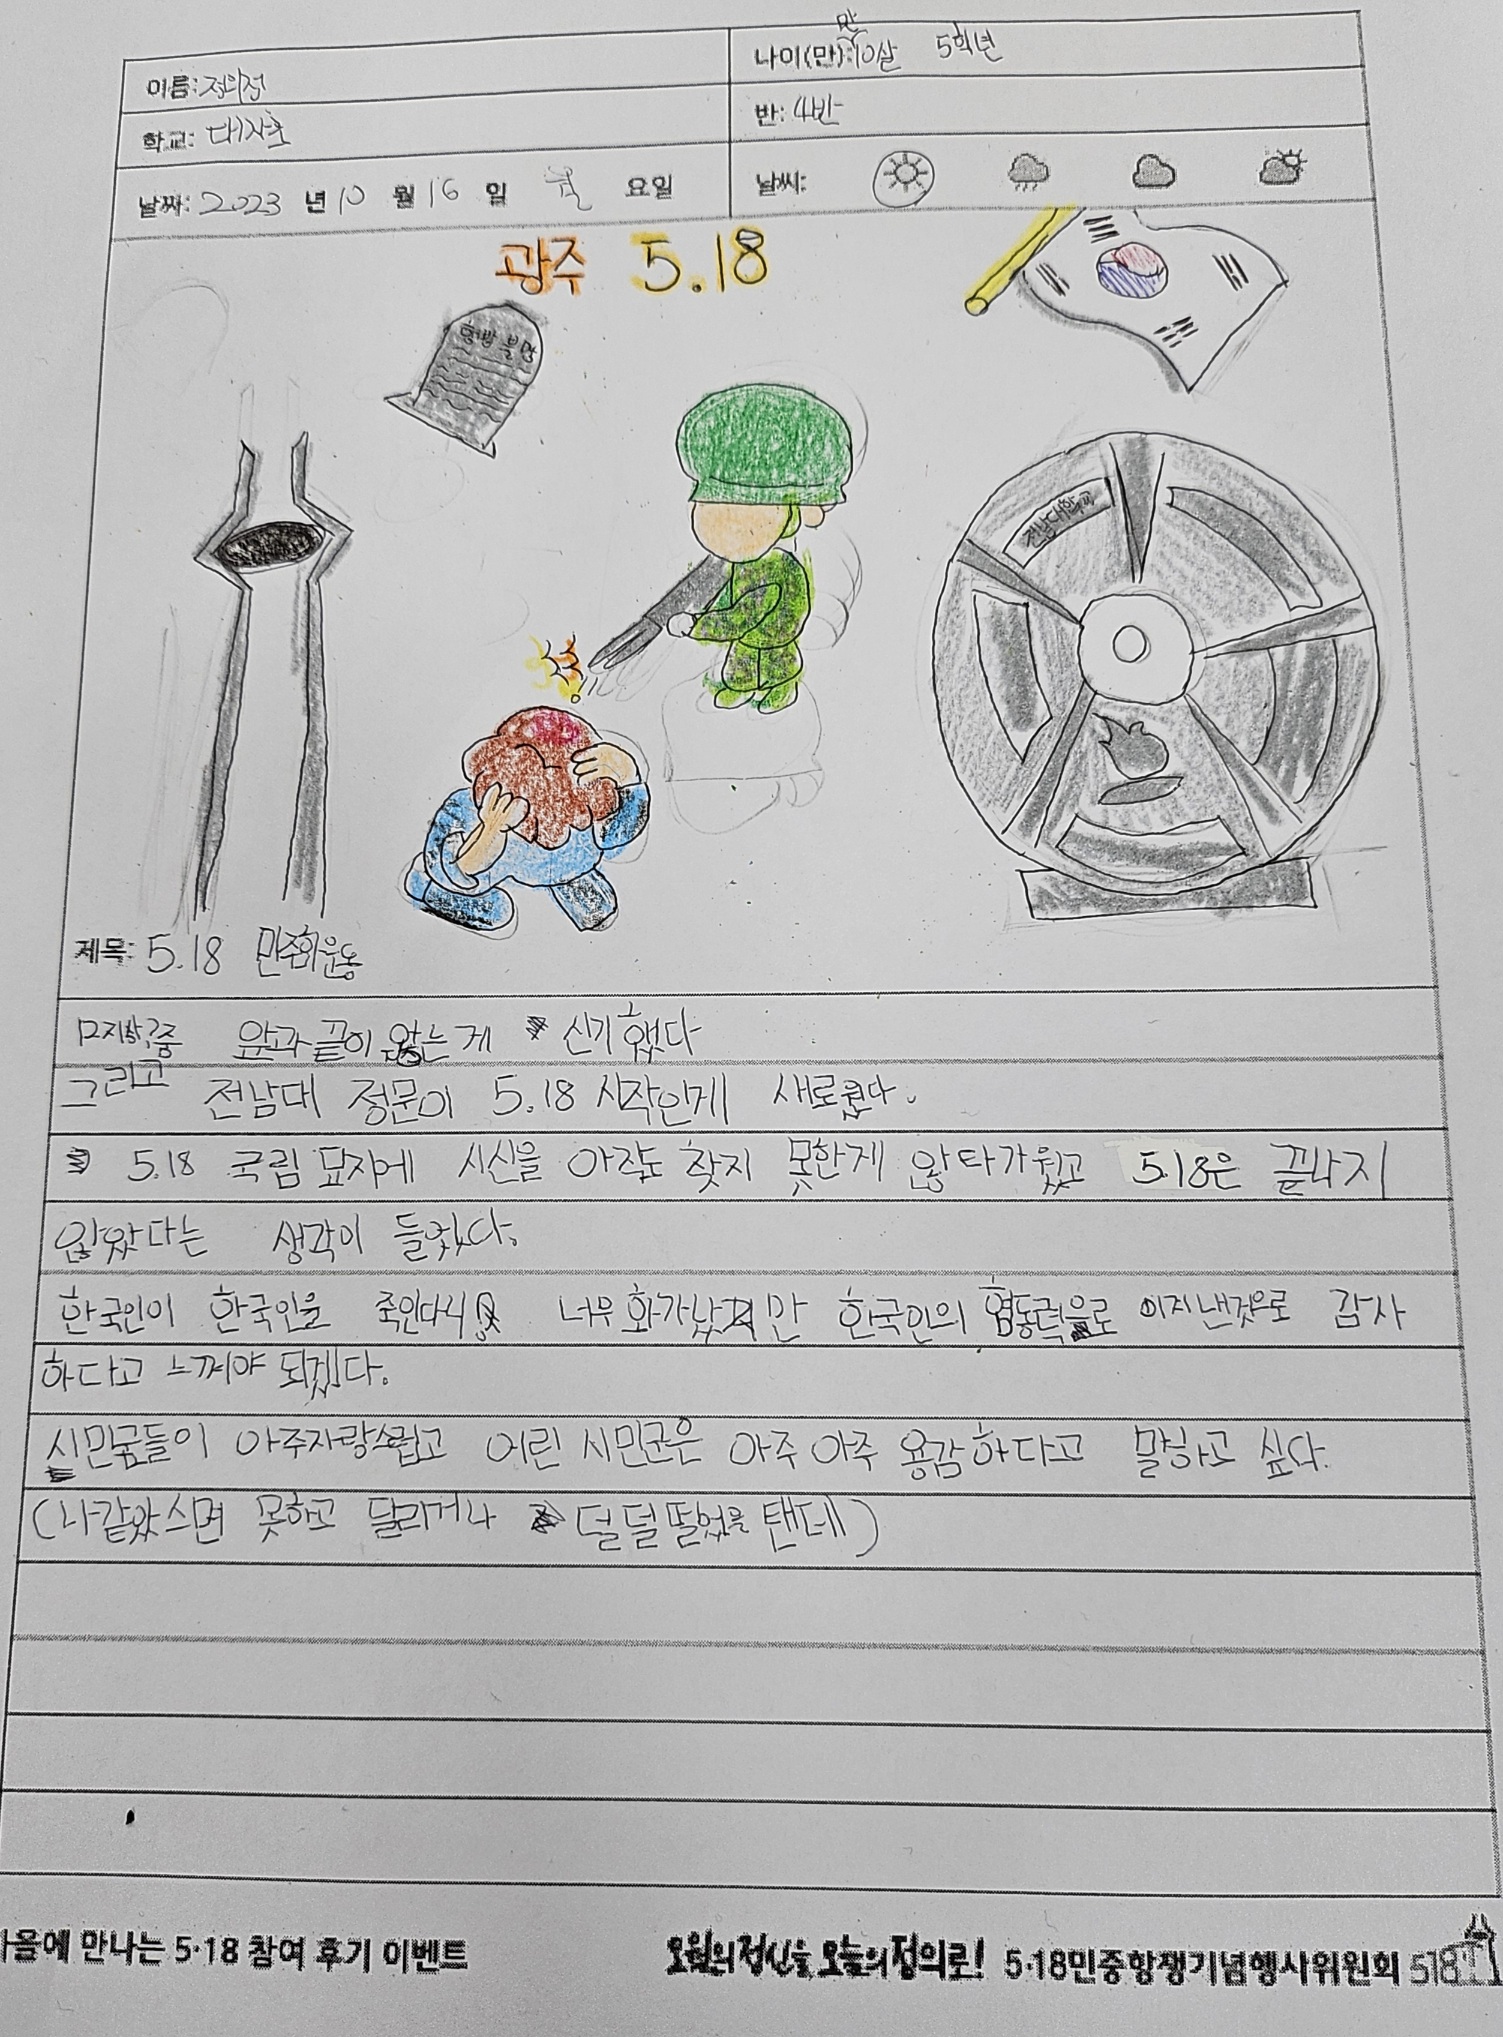 이름: 정의정
나이(만): 만 10살 5학년
학교: 대자초
반: 4반
날짜: 2023 년 10 월 16 일 월 요일
날씨:
광주 5.18
행방불명
전남대학교
제목: 5.18 민주화운동
묘지학중 앞과끝이 않는게 신기했다
그리고 전남대 정문이 5.18 시작인게 새로웠다.
5.18 국립 묘지에 시신을 아직도 찾지 못한게 않타가웠고 5.18은 끝나지
않았다는 생각이 들었다.
한국인이 한국인을 죽인다니 너무 화가났지만 한국인의 협동력으로 이겨낸것으로 감사
하다고 느껴야 되겠다.
시민군들이 아주자랑스럽고 어린 시민군은 아주 아주 용감하다고 말하고 싶다.
(나같았스면 못하고 달리거나 덜덜 떨었을 텐데)
가을에 만나는 5·18 참여 후기 이벤트
오월의 정신을 오늘의 정의로! 5·18민중항쟁기념행사위원회 518